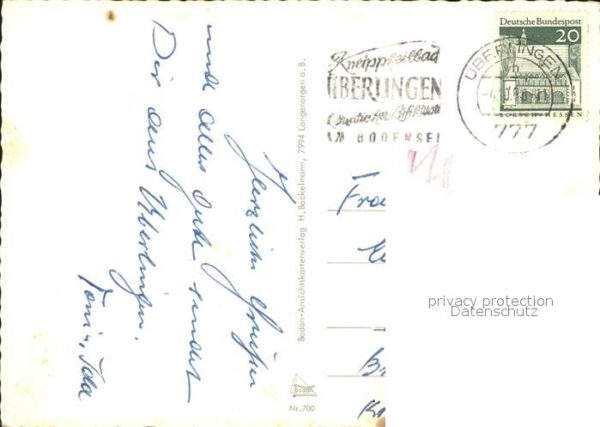 Herzliche Grüße
und alles Gute sendet
Dir aus Überlingen.
Toni u. Ida
Bodan-Ansichtskartenverlag H. Bockelmann, 7994 Langenargen a. B.
Nr. 700
Kneippheilbad
ÜBERLINGEN
AM BODENSEE
ÜBERLINGEN
777
Deutsche Bundespost
20
LORSCH-HESSEN
Frau
privacy protection
Datenschutz